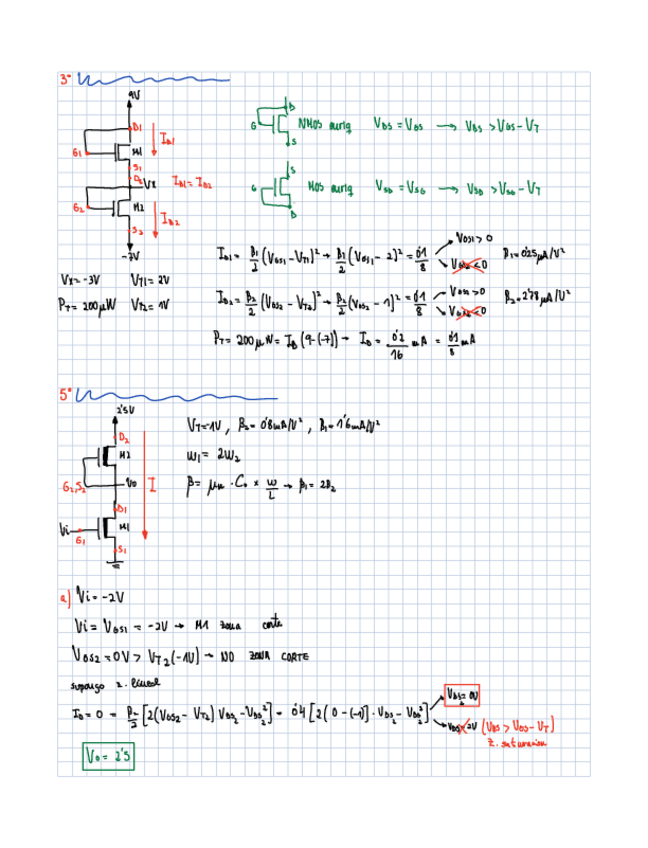 3º
9V
D1
G1
M1
ID1
S1
D2
VX
ID1 = ID2
G2
M2
ID2
S2
-7V
G D S NMOS VDS = VGS → VDS > VGS - VT
G S D MOS VSD = VSG → VSD > VSG - VT
VX = -3V VT1 = 2V
PT = 200 μW VT2 = 1V
ID1 = β1/2 (VGS1 - VT1)² → β1/2 (VGS1 - 2)² = 0'1/8 VGS1 > 0 VGS1 < 0 β1 = 0'25 μA/V²
ID2 = β2/2 (VGS2 - VT2)² → β2/2 (VGS2 - 1)² = 0'1/8 VGS2 > 0 VGS2 < 0 β2 = 2'78 μA/V²
PT = 200 μW = ID (9-(-7)) → ID = 0'2/16 mA = 0'1/8 mA
5º
2'5V
D2
M2
G2,S2
V0
I
D1
Vi
G1
M1
S1
VT = -1V , β2 = 0'8mA/V² , β1 = 1'6mA/V²
W1 = 2W2
β = μn · C0 x W/L → β1 = 2β2
a) Vi = -2V
Vi = VGS1 = -2V → M1 zona corte
VGS2 = 0V > VT2 (-1V) → NO ZONA CORTE
supongo z. lineal
ID = 0 = β2/2 [2(VGS2 - VT2) VDS2 - VDS2²] = 0'4 [2(0 - (-1)) · VDS2 - VDS2²] VDS2 = 0V
VDS2 = 2V (VDS > VGS - VT)
z. saturacion
V0 = 2'5